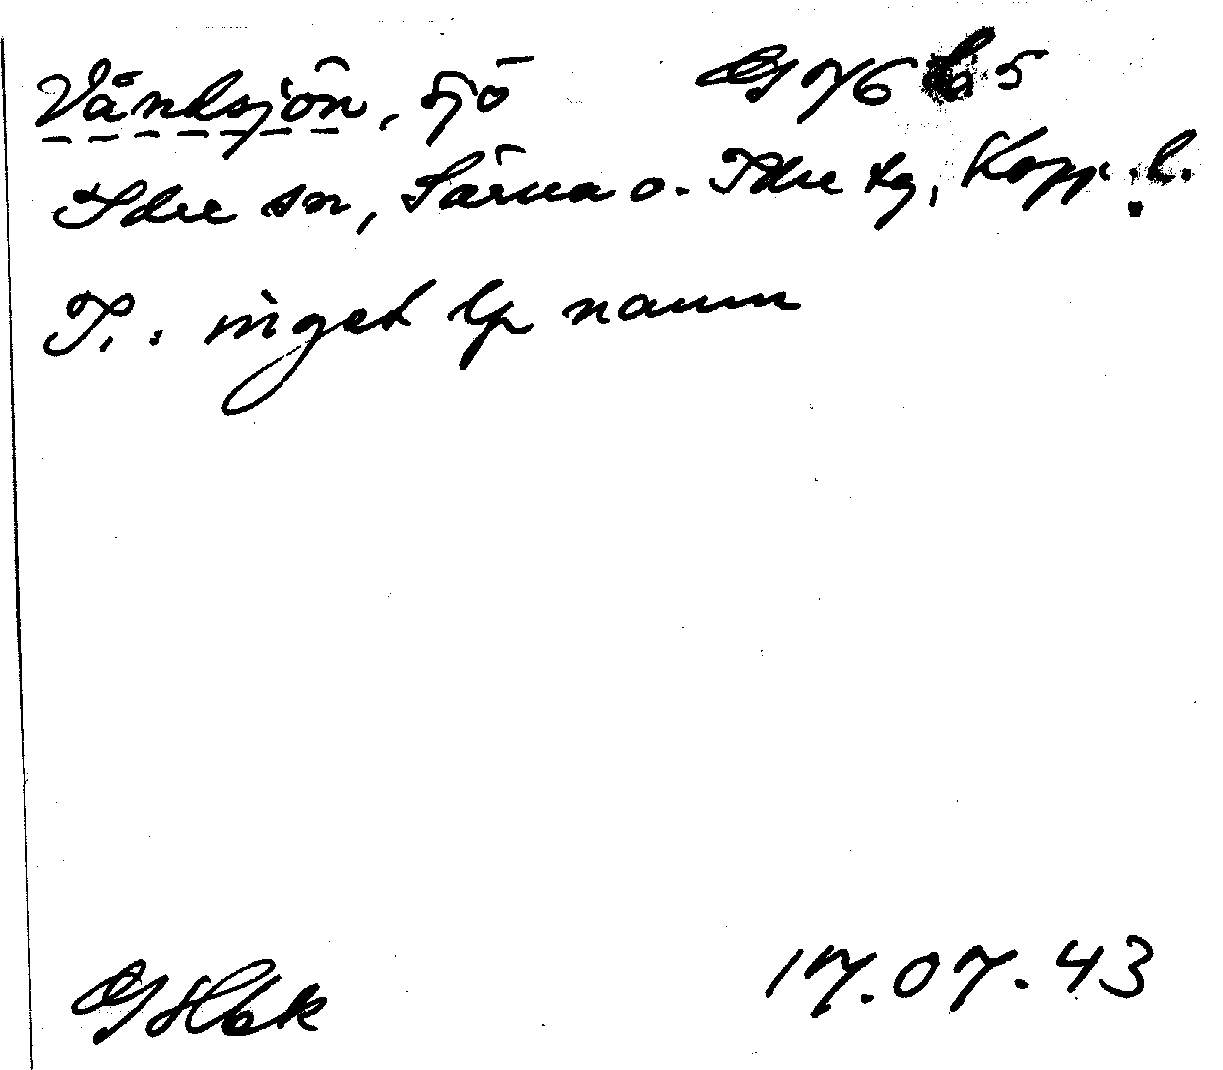 Våndsjön, sjö G 76 b 5
Idre sn, Särna o. Idre tg, Kopp. l.
I.: inget lp namn
17.07.43